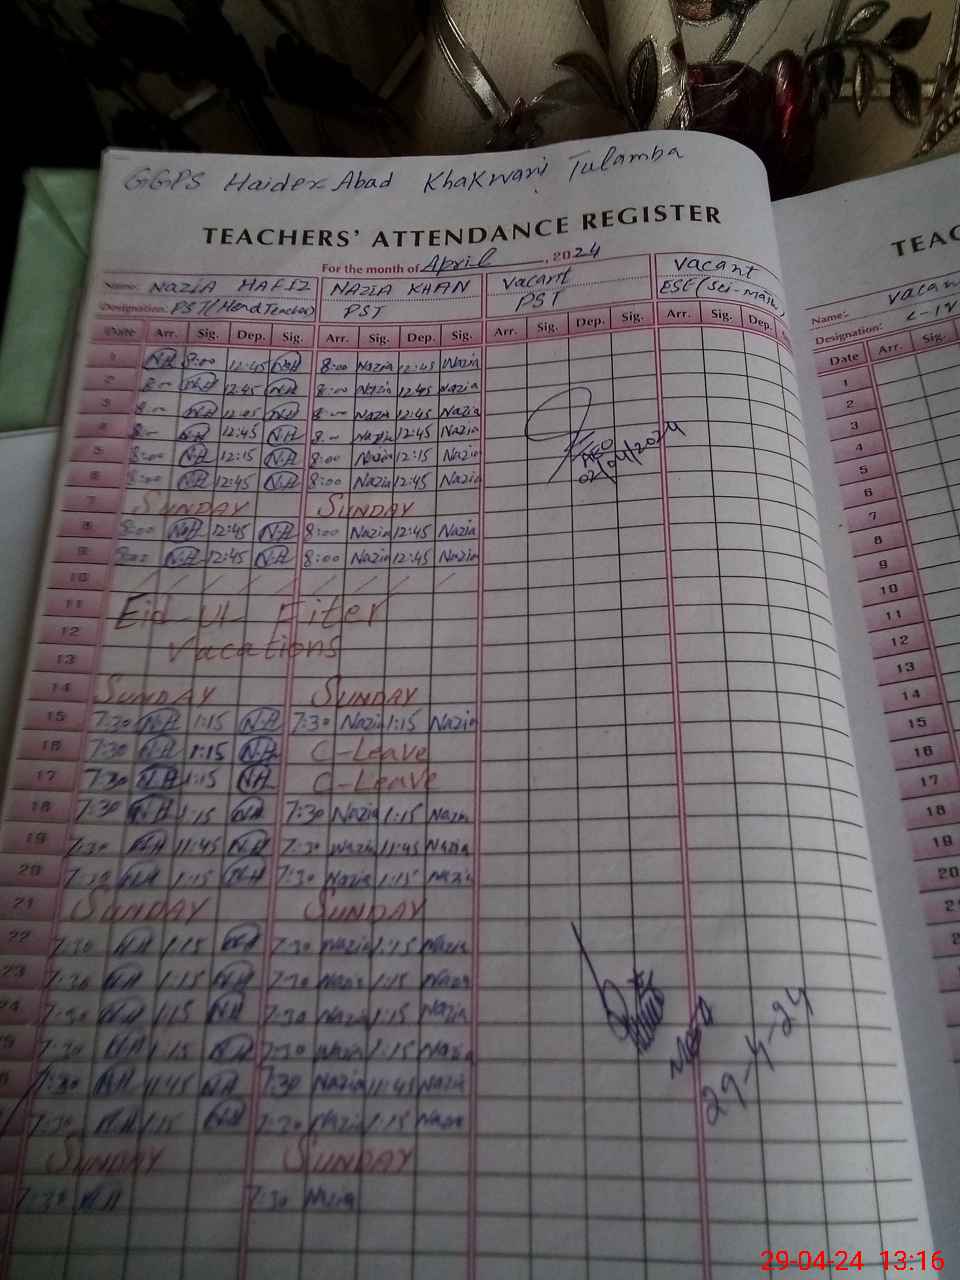 GGPS Haider Abad Khakwani Tulamba
TEACHERS' ATTENDANCE REGISTER
For the month of April, 2024
Name: NAZIA HAFIZ NAZIA KHAN Vacant Vacant
Designation: PST (Head Teacher) PST PST ESE (Sci-Math)
Date Arr. Sig. Dep. Sig. Arr. Sig. Dep. Sig. Arr. Sig. Dep. Sig. Arr. Sig. Dep.
1 N.A 8:00 12:45 N.A 8:00 Nazia 12:45 Nazia
2 8:00 N.A 12:45 N.A 8:00 Nazia 12:45 Nazia
3 8:00 N.A 12:45 N.A 8:00 Nazia 12:45 Nazia
4 8:00 N.A 12:45 N.A 8:00 Nazia 12:45 Nazia
5 8:00 N.A 12:15 N.A 8:00 Nazia 12:15 Nazia
AEO
02/04/2024
6 8:00 N.A 12:45 N.A 8:00 Nazia 12:45 Nazia
7 SUNDAY SUNDAY
8 8:00 N.A 12:45 N.A 8:00 Nazia 12:45 Nazia
9 8:00 N.A 12:45 N.A 8:00 Nazia 12:45 Nazia
10
11 Eid-UL Fiter
12 vacations
13
14 SUNDAY SUNDAY
15 7:30 N.A 1:15 N.A 7:30 Nazia 1:15 Nazia
16 7:30 N.A 1:15 N.A C-Leave
17 7:30 N.A 1:15 N.A C-Leave
18 7:30 N.A 1:15 N.A 7:30 Nazia 1:15 Nazia
19 7:30 N.A 11:45 N.A 7:30 Nazia 11:45 Nazia
20 7:30 N.A 1:15 N.A 7:30 Nazia 1:15 Nazia
21 SUNDAY SUNDAY
22 7:30 N.A 1:15 N.A 7:30 Nazia 1:15 Nazia
23 7:30 N.A 1:15 N.A 7:30 Nazia 1:15 Nazia
24 7:30 N.A 1:15 N.A 7:30 Nazia 1:15 Nazia
7:30 N.A 1:15 N.A 7:30 Nazia 1:15 Nazia
7:30 N.A 11:45 N.A 7:30 Nazia 11:45 Nazia
29-4-24
7:30 N.A 1:15 N.A 7:30 Nazia 1:15 Nazia
SUNDAY SUNDAY
7:30 N.A 7:30 Nazia
TEAC
Name: Vacan
Designation:
Date Arr. Sig.
1
2
3
4
5
6
7
8
9
10
11
12
13
14
15
16
17
18
19
20
29-04-24 13:16